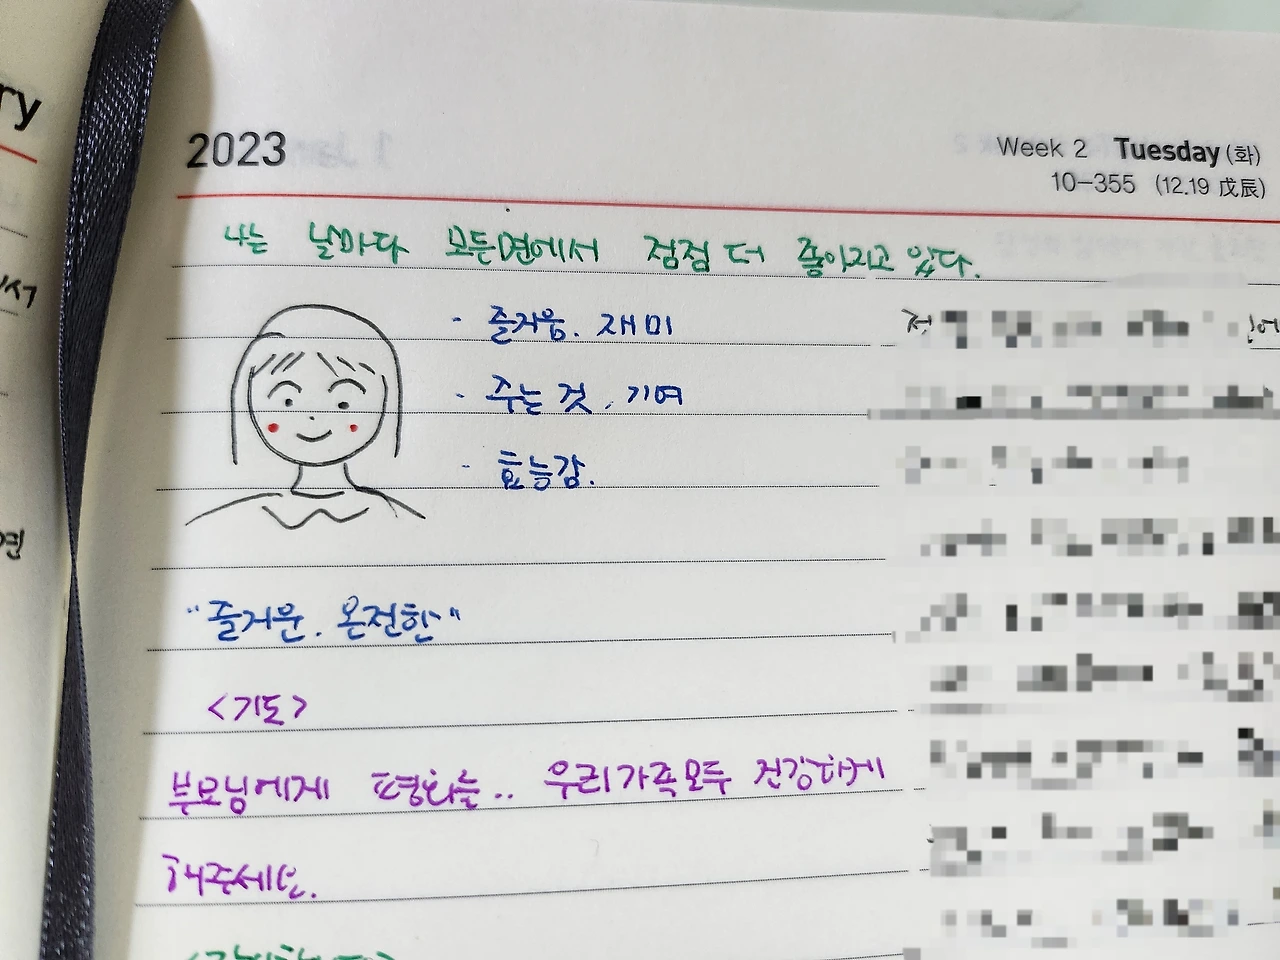 ry
2023
Week 2 Tuesday (화)
10-355 (12.19 戊辰)
나는 날마다 모든면에서 점점 더 좋아지고 있다.
- 즐거움. 재미
- 주는 것. 기여
- 효능감.
"즐거운. 온전한"
<기도>
부모님에게 평화를.. 우리가족모두 건강하게
해주세요.